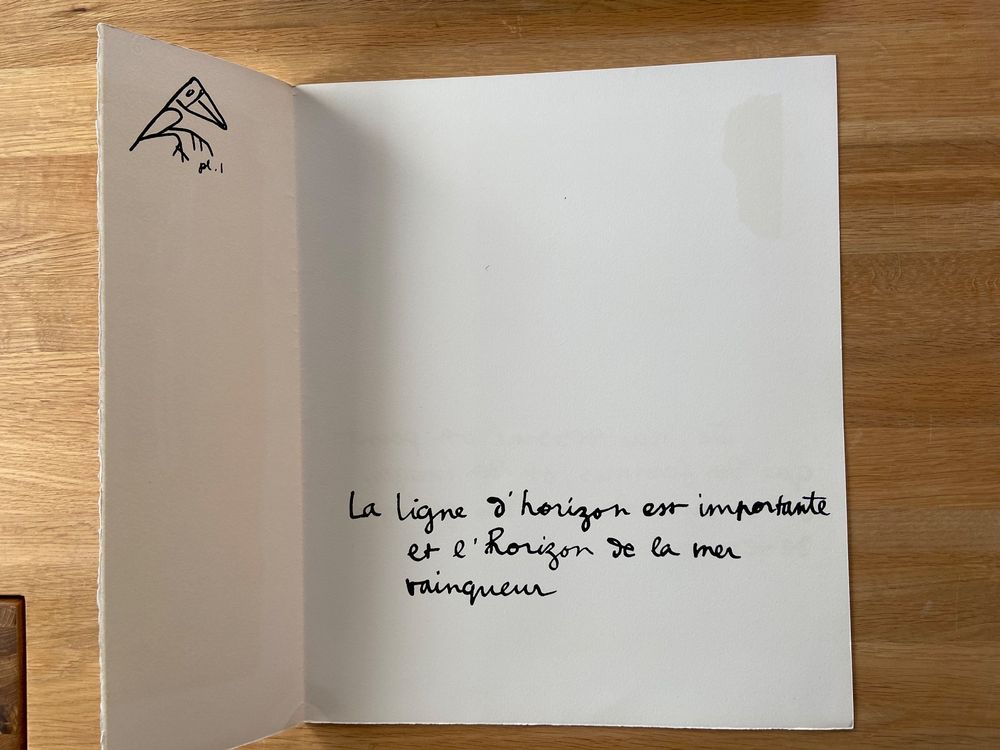 pl. 1
La ligne d'horizon est importante
et l'horizon de la mer
vainqueur